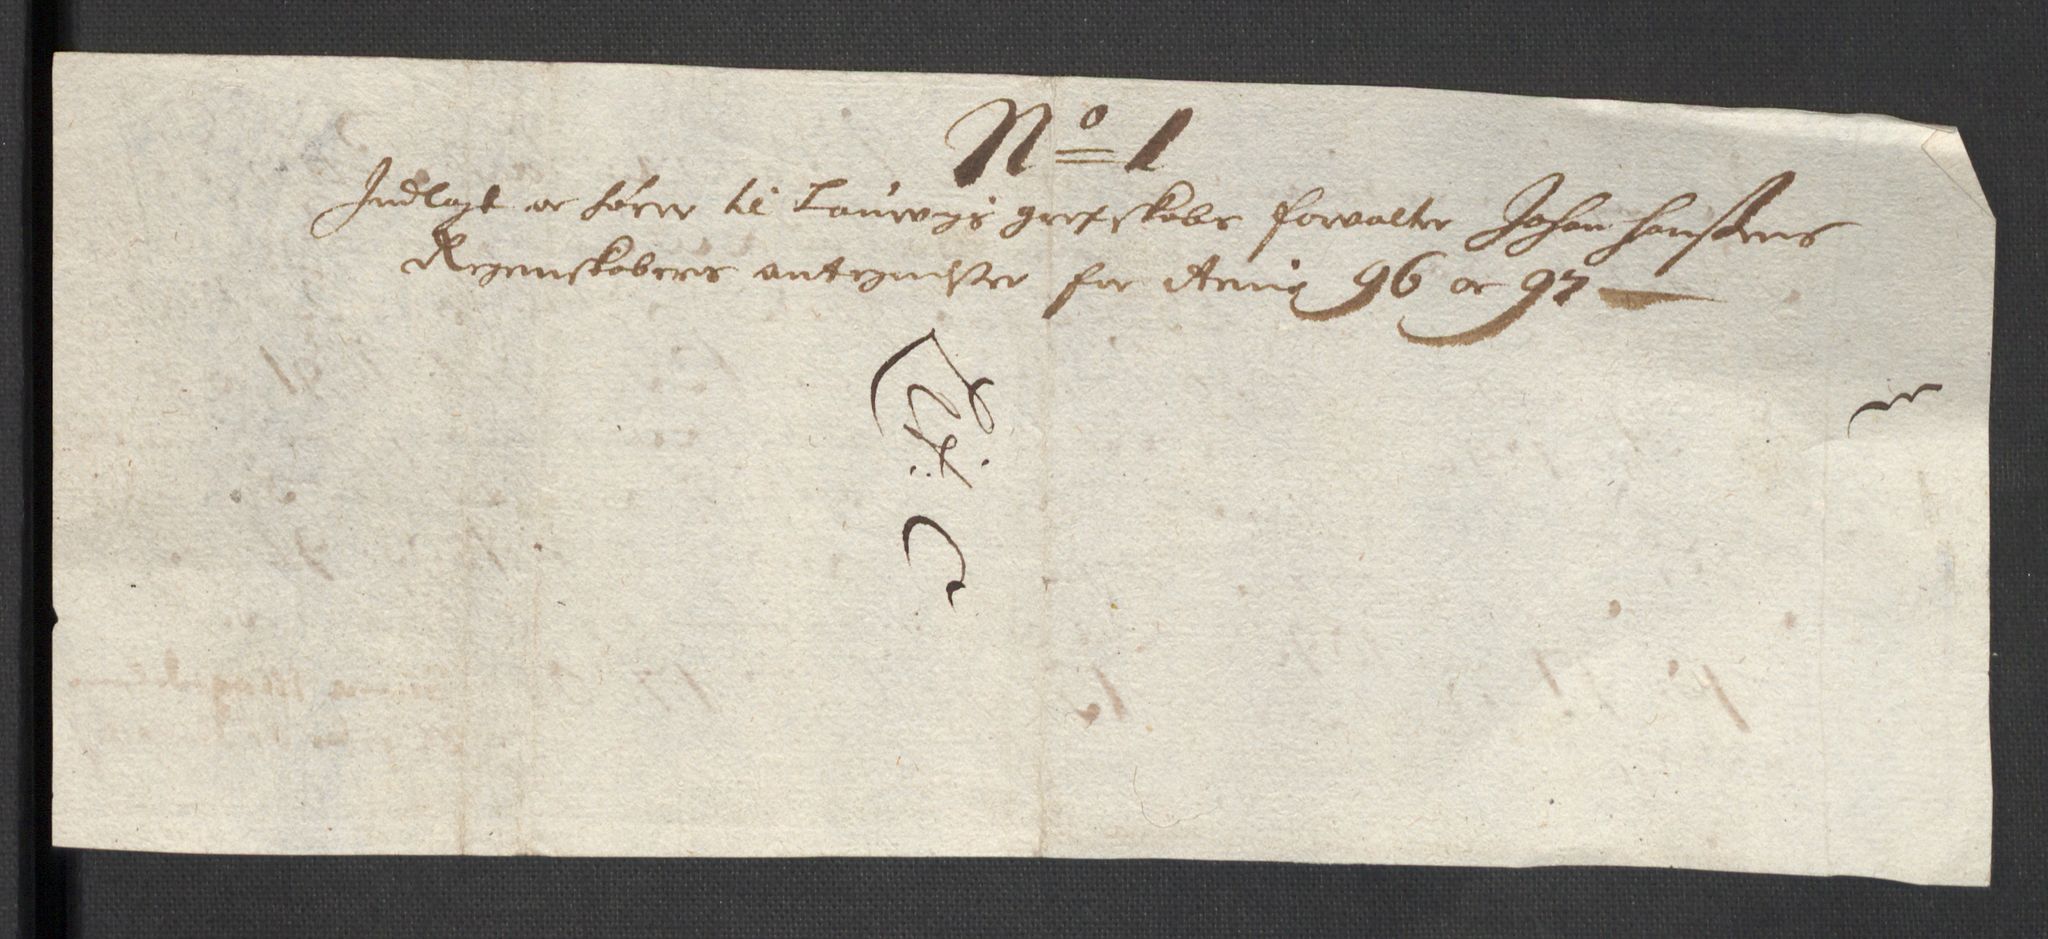 No 1
Indlagt oc hører til Laurvigs grefskabs forvalter Johan Hansens
Regenskabers antegnelser for Annis 96 oc 97
Lit: C